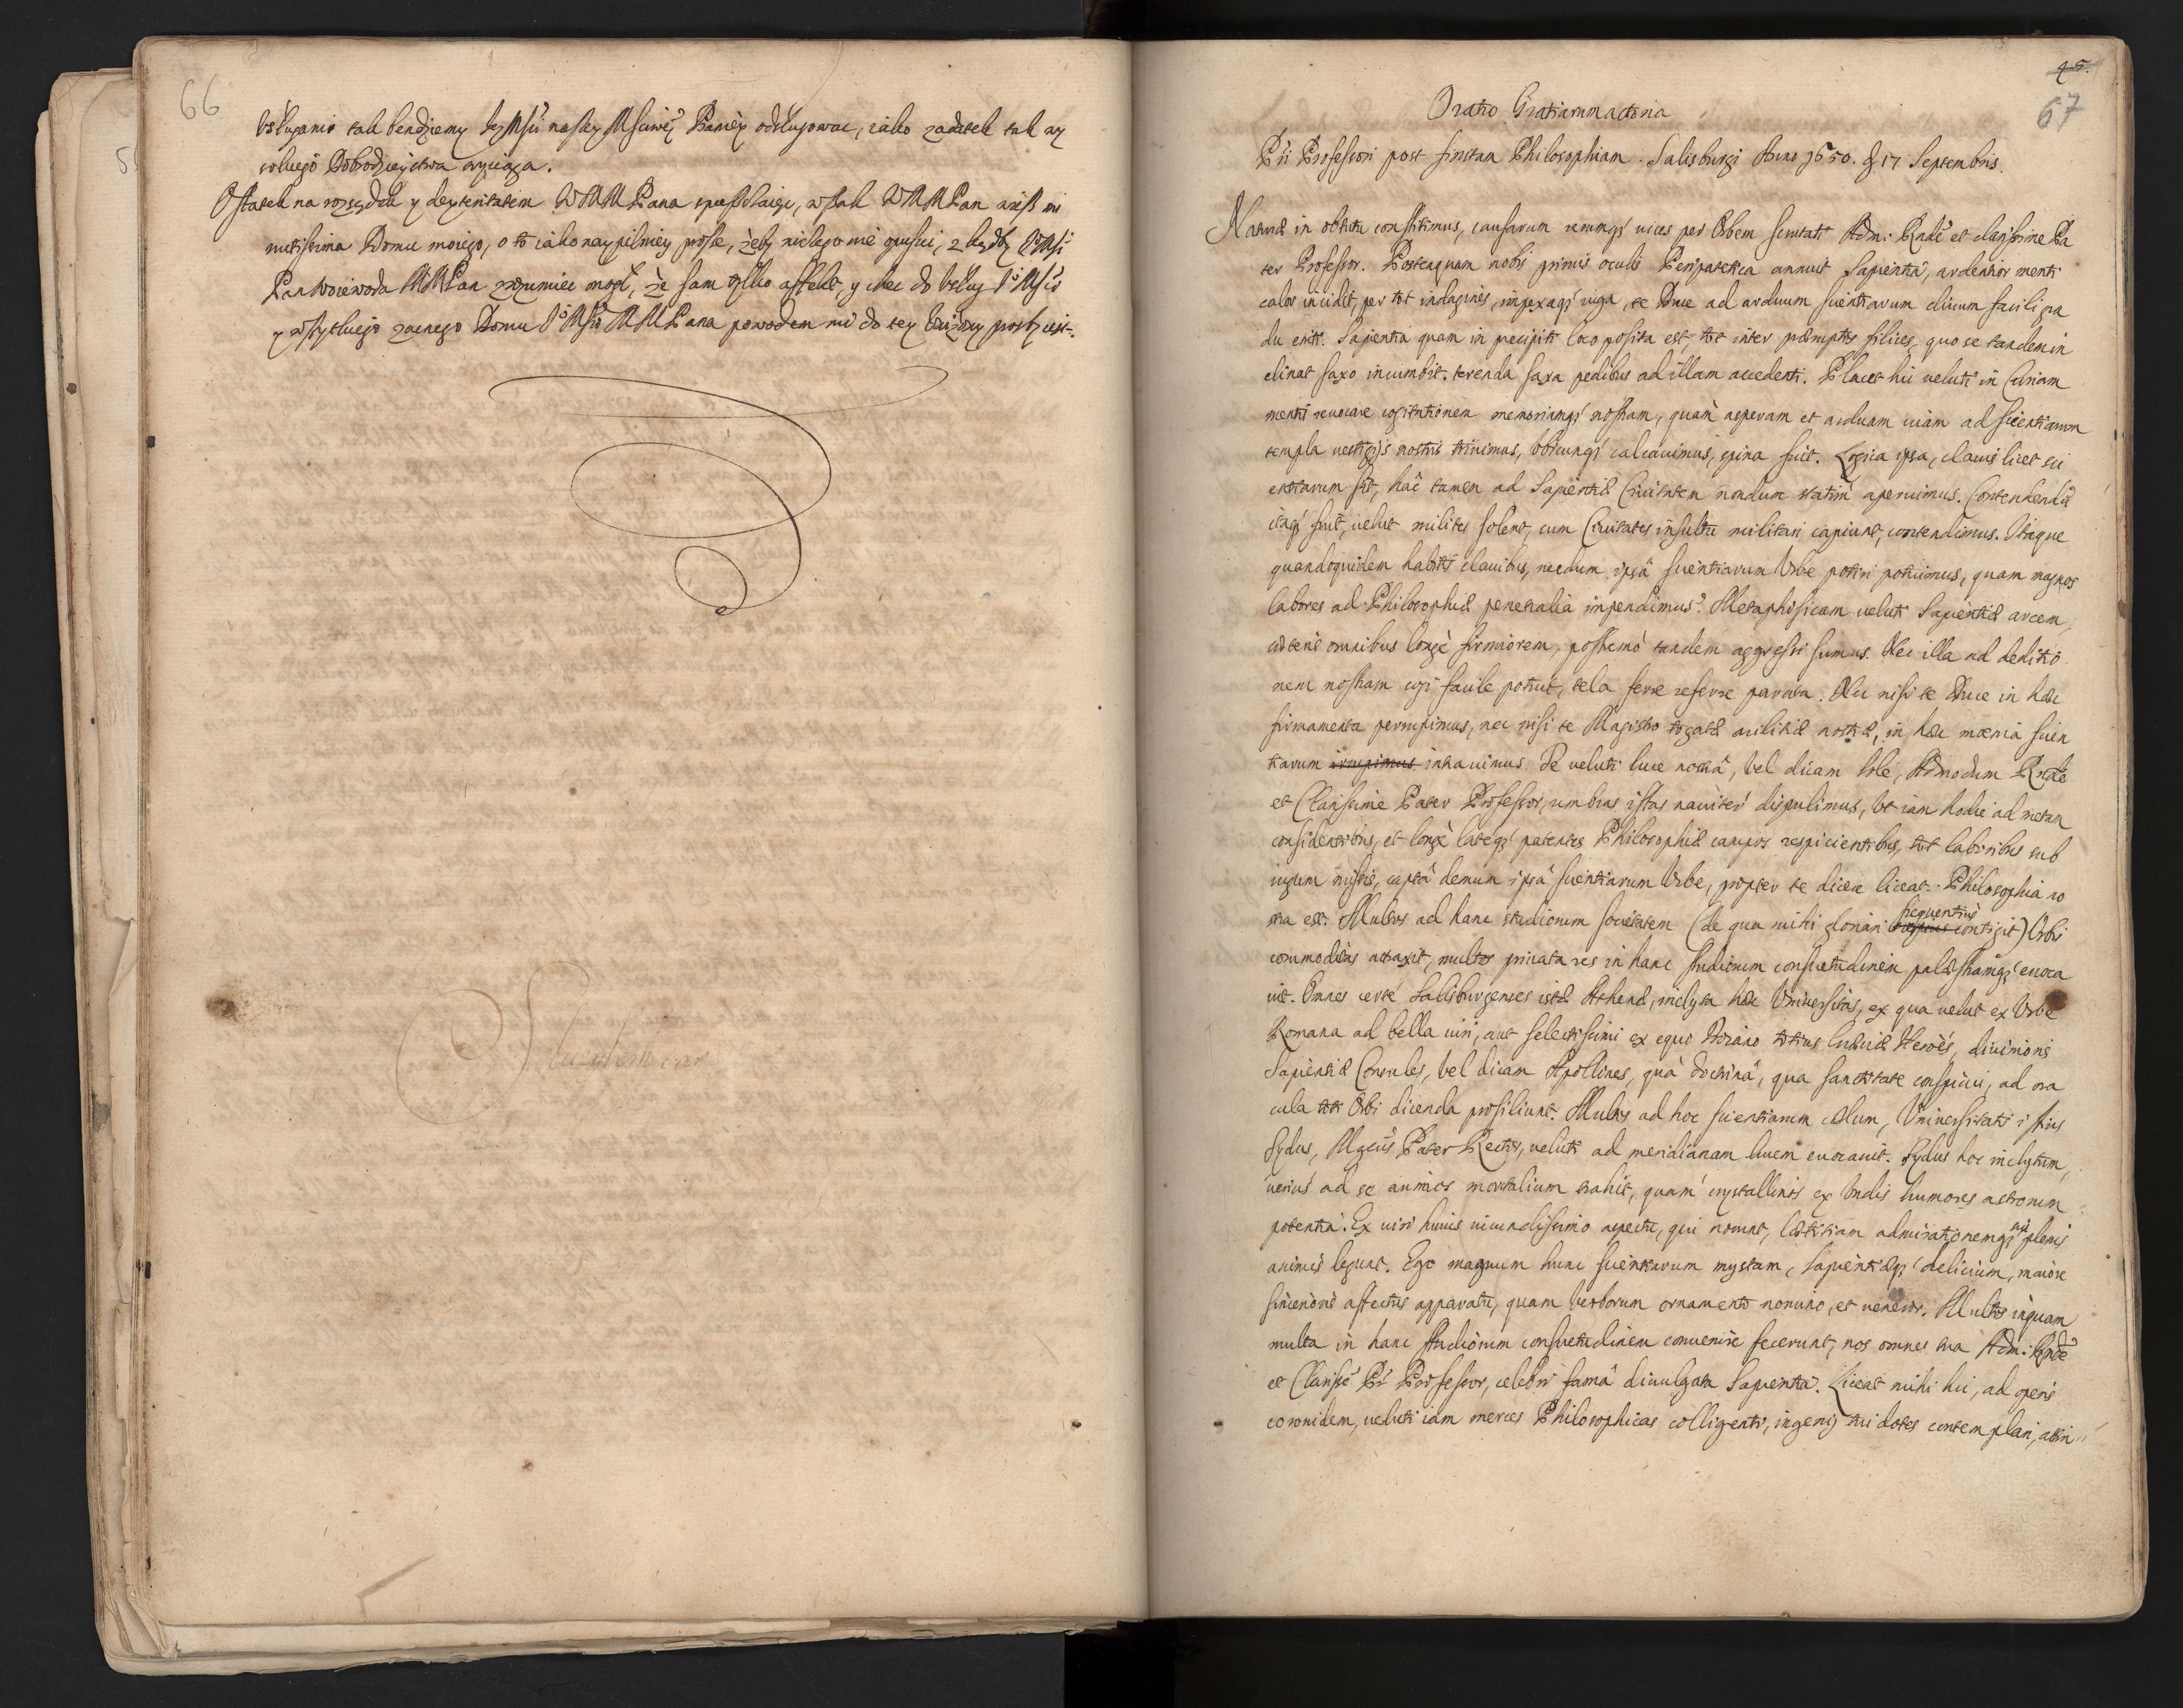 66
vsługanie tak bendziemy Jey Msci naszey Msciwey Paniey odsługowac, iako zadatek tak wy
sokiego Dobrodzieystwa wyciąga.
Ostatek na rozsądek y dexteritatem WMM Pana spuszczaiąc, wszak WMM Pan wiesz in
timissima Domu moiego, o to iako naypilniey proszę, żeby niczego nie opuscic,
Pan Woiewoda MM Pan zrozumiec mogł, że sam tylko affekt, y chec do vsług Je Msci
y wszystkiego zacnego Domu Je Msci MM Pana powodem mi do tey
45.
67
Oratio Gratiarumactoria
P'ri Professori post finitam Philosophiam Salisburgi Anno 1650. d 17 Septembris.
Naturæ in obtutu constitimus, causarum rerumq; vices per Orbem scrutati Adm: Rnde et clarissime Pa
ter Professor. Posteaquam nobis primis oculis Peripatetica annuit Sapientia, ardentior menti
calor incidit, per tot indagines, impexaq; iuga, te Duce ad arduum scientiarum clivum facili gra
du eniti. Sapientia quam in præcipiti loco posita est, tot inter præruptos silices, quo se tandem in
clinat saxo incumbit. terenda saxa pedibus ad illam accedenti. Placet hic veluti in Curiam
mentis revocare cogitationem memoriamq; nostram, quam asperam et arduam viam ad scientiarum
templa vestigijs nostris trivimus, vbicunq; calcavimus, spina fuit. Logica ipsa, clavis licet sci
entiarum sit, hac tamen ad Sapientiæ Civitatem nondum statim aperuimus. Contendendū
itaq; fuit, velut milites solent, cum Civitates insultu militari capiunt, contendimus. Itaque
quandoquidem habitis clavibus, necdum ipsâ scientiarum Vrbe potiri potuimus, quam magnos
labores ad Philosophiæ penetralia impendimus? Metaphisicam veluti Sapientiæ arcem,
cæteris omnibus longè firmiorem, postremò tandem aggressi sumus. Nec illa ad deditio
nem nostram cogi facile potuit, tela ferre referre parata. Nec nisi te Duce in hæc
firmamenta perrupimus, nec nisi te Magistro togatæ militiæ nostræ, in hæc mœnia scien
tiarum irrupimus intravimus. Te veluti luce nostrâ, vel dicam Sole, Admodum Rnde
et Clarissime Pater Professor, umbras istas naviter dispulimus, vt iam hodie ad metam
considentibus, et longè lateq; patentes Philosophiæ campos respicientibus, tot laboribus sub
iugum missis, captâ demum ipsâ scientiarum Vrbe, propter te dicere liceat. Philosophia no
stra est. Multos ad hanc studiorum societatem (de qua mihi gloriari sæpius frequentius contigit) Vrbis
commoditas attraxit, multos privata res in hanc studiorum consuetudinem palæstramq; evoca
vit. Omnes certè Salisburgenses istæ Athenæ, inclyta hæc Vniversitas, ex qua velut ex Vrbe
Romana ad bella viri, aut selectissimi ex equo Troiano totius Græciæ Heroës, divinioris
Sapientiæ Consules, vel dicam Apollines, quâ doctrinâ, qua sanctitate conspicui, ad ora
cula toti Orbi dicenda prosiliunt. Multos ad hoc scientiarum cælum, Vniversitatis istius
Sydus, Mgcus Pater Rector, veluti ad meridianam lucem evocavit. Sydus hoc inclytum,
verius ad se animos mortalium trahit, quam crystallinis ex Vndis humores astrorum
potentia. Ex viri huius iucundissimo aspectu, qui norunt, lætitiam admirationemq; sui plenis
animis legunt. Ego magnum hunc scientiarum mystam, Sapientiæq; delicium, maiore
sincerioris affectus apparatu, quam verborum ornamento nomino, et veneror. Multos inquam
multa in hanc studiorum consuetudinem convenire fecerunt, nos omnes tua Adm: Rnde
et Clarisse P'r Professor, celebri famâ divulgata Sapientia. Liceat mihi hic, ad operis
coronidem, veluti iam merces Philosophicas colligenti, ingenij tui dotes contemplari,